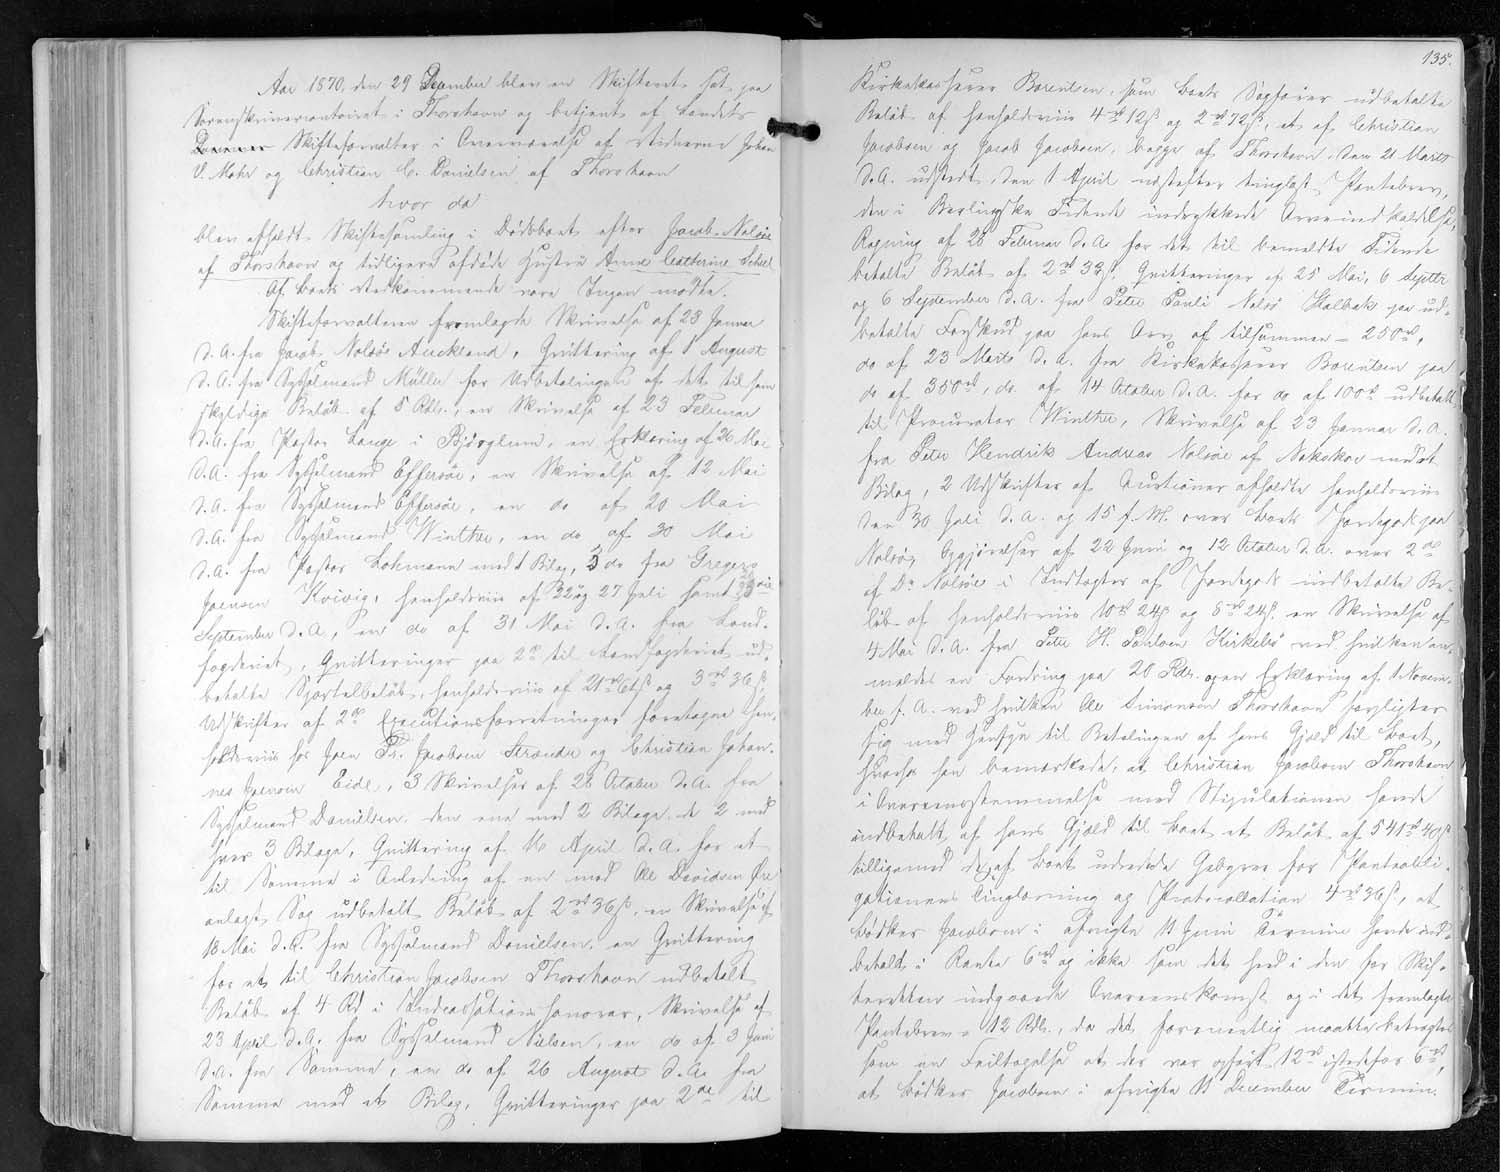 Aar 1870, den 29 December blev en Skifteret sat paa
Sorenskrivercontoiret i Thorshavn og betjent af Landets
Skifteforvalter i Overværelse af Vidnerne Johan
V. Mohr og Christian C. Danielsen af Thorshavn
hvor da
blev afholdt Skiftesamling i Dødsboet efter Jacob Nolsøe
af Thorshavn og tidligere afdøde Hustru Anne Cathrine
Af Boets Vedkommende vare Ingen mødte.
Skifteforvalteren fremlagde Skrivelse af 23 Januar
d.A. fra Jacob Nolsøe Auckland, Qvittering af 1 August
d.A. fra Sysselmand Müller for Udbetalingen af det til ham
skyldige Beløb af 5 Rdlr., en Skrivelse af 23 Februar
d.A. fra Pastor Lange i Bjørglum, en Erklæring af 26 Mai
d.A. fra Sysselmand Effersøe, en Skrivelse af 12 Mai
d.A. fra Sysselmand Effersøe, en do af 20 Mai
d.A. fra Sysselmand Winther, en do af 30 Mai
d.A. fra Pastor Lohmann med 1 Bilag, 3 do fra Gregers
Joensen Kvivig, henholdsviis af 27 Juli samt
September d.A., en do af 31 Mai d.A. fra Land-
fogderiet, Qvitteringer paa 2de til Landfogderiet ud-
betalte Sportelbeløb, henholdsviis af 21 rd 61 ß og 3 rd 36 ß,
Udskrifter af 2de Executionsforretninger foretagne hen-
holdsviis hos Joen Pr. Jacobsen Strænde og Christian Johan-
nes Joensen Eide, 3 Skrivelser af 28 October d.A. fra
Sysselmand Danielsen, den ene med 2 Bilage, de 2 med
hver 3 Bilage, Qvittering af 16 April d.A. for et
til Samme i Anledning af en mod Ole Davidsen Øre
anlagt Sag udbetalt Beløb af 2 rd 36 ß, en Skrivelse af
18 Mai d.A. fra Sysselmand Danielsen, en Qvittering
for et til Christian Jacobsen Thorshavn udbetalt
Beløb af 4 Rd i Incassations honorar, Skrivelse af
23 April d.A. fra Sysselmand Nielsen, en do af 3 Juni
d.A. fra Samme, en do af 26 August d.A. fra
Samme med et Bilag, Qvitteringer paa 2de til
135.
Kirkekasserer Barentsen, som Boets Sagfører udbetalte
Beløb af henholdsviis 4 rd 12 ß og 2 rd 72 ß, et af Christian
Jacobsen og Jacob Jacobsen, begge af Thorshavn den 21 Marts
d.A. udstedt, den 1 April næstefter tinglæst Pantebrev,
den i Berlingske Tidende indrykkede Arveindkaldelse,
Regning af 28 Februar d.A. for det til bemeldte Tidende
betalte Beløb af 2 rd 32 ß, Qvitteringer af 25 Mai, 6 Septbr
og 6 September d.A. fra Peter Pauli Nolsø Kalbak paa ud-
betalte Forskud paa hans Arv af tilsammen = 250 rd,
do af 23 Marts d.A. fra Kirkekasserer Barentsen paa
do af 350 rd, do. af 14 October d.A. for do af 100 rd udbetalt
til Procurator Winther, Skrivelse af 23 Januar d.A.
fra Peter Hendrik Andreas Nolsøe af Nakskov med et
Bilag, 2 Udskrifter af Auctioner afholdte henholdsviis
den 30 Juli d.A. og 15 f.M. over Boets Jordegods paa
Nolsø, Opgjørelser af 22 Juni og 12 October d.A. over 2de
af Dr Nolsøe i Indtægter af Jordegods indbetalte Be-
løb af henholdsviis 10 rd 24 ß og 8 rd 24 ß, en Skrivelse af
4 Mai d.A. fra Peter H. Poulsen Kirkebø ved hvilken an-
meldes en Fordring paa 20 Rdlr. og en Erklæring af 1 Novem-
ber f.A. ved hvilken Ole Simonsen Thorshavn forpligter
sig med Hensyn til Betalingen af hans Gjæld til Boet,
hvorhos han bemærkede, at Christian Jacobsen Thorshavn
i Overensstemmelse med Stipulationen havde
indbetalt af hans Gjæld til Boet et Beløb af 541 rd 40 ß
tilligemed de af Boet udredede Gebyrer for Pantobli-
gationens Tinglæsning og Protocollation 4 rd 36 ß, at
Bødker Jacobsen i afvigte 11 Juni Termin havde ind-
betalt i Rente 6 rd og ikke som det hed i den for Skif-
teretten indgaaede Overeenskomst og i det fremlagte
Pantebrev = 12 Rdlr., da det formeentlig maatte betragtes
som en Feiltagelse at der var opført 12 rd istedetfor 6 rd,
at Bødker Jacobsen i afvigte 11 December Termin